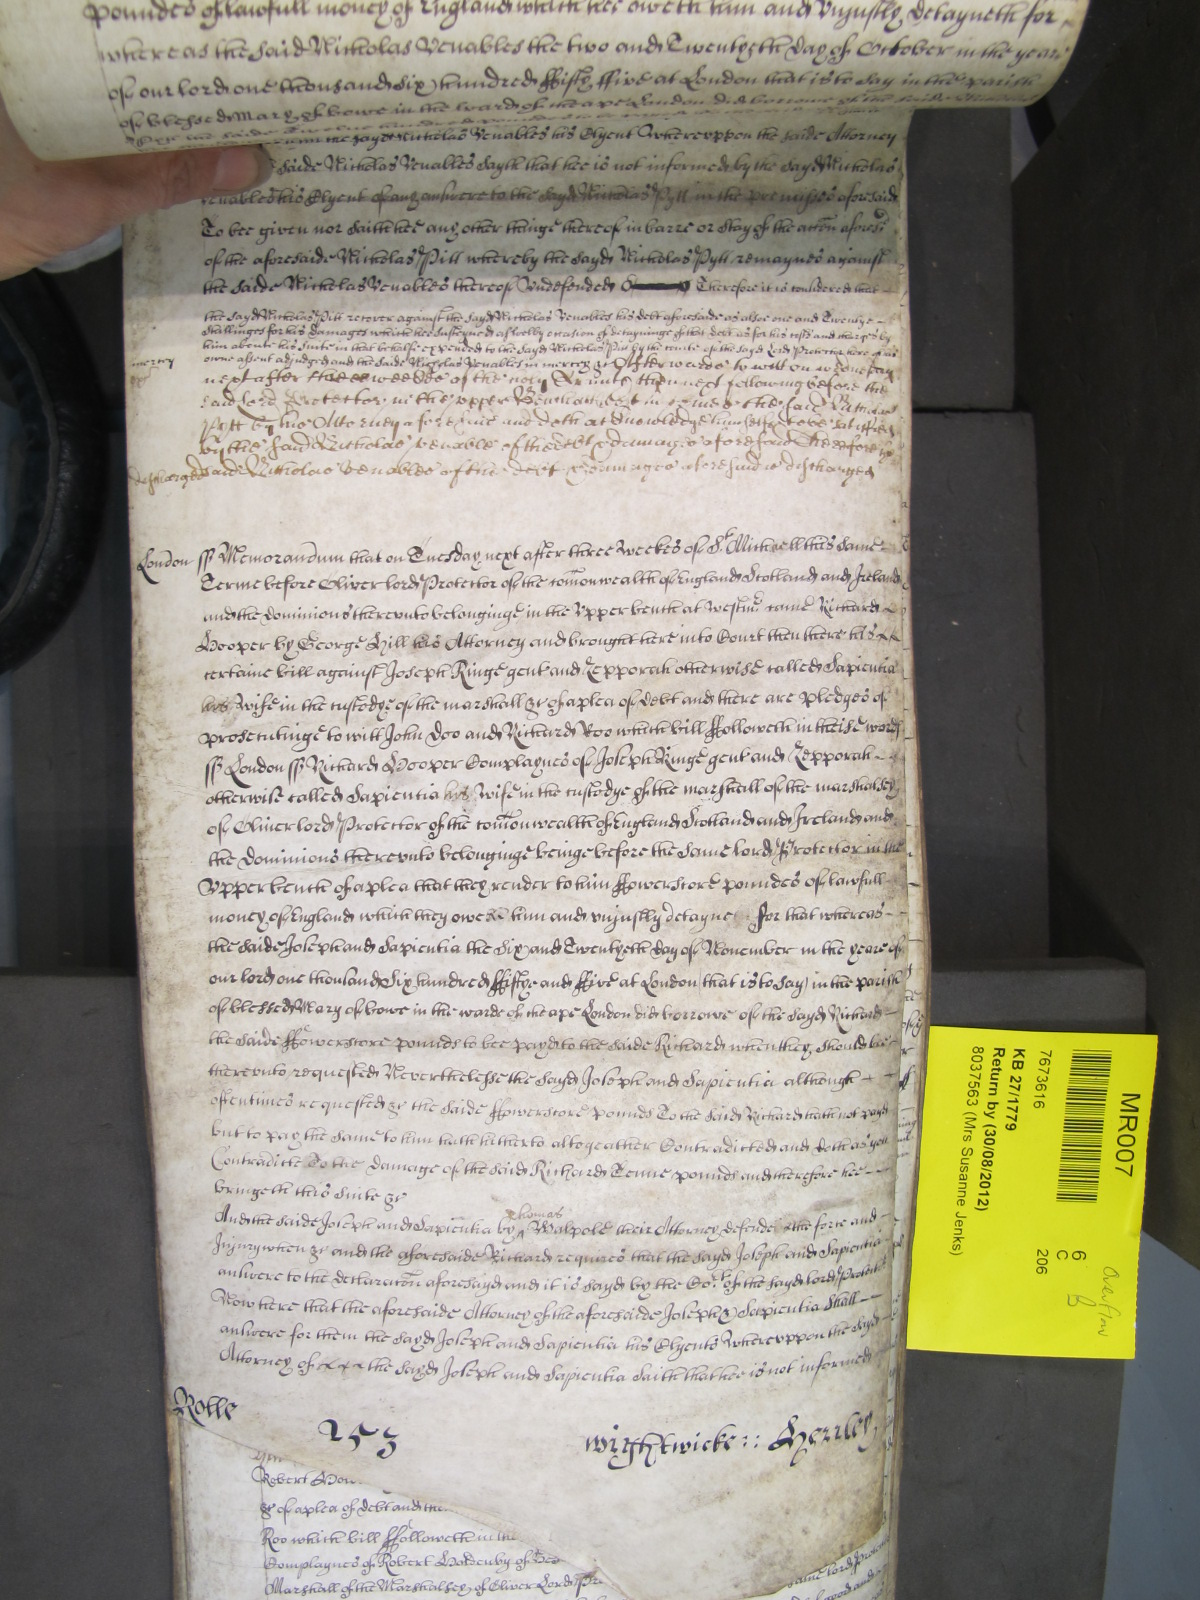 pounds of lawfull money of England which hee oweth him and vnjustly detayneth for
whereas the said Nicholas Venables the two and Twentyeth day of October in the yeare
of our lord one thousand Six hundred ffifty ffive at London that is to say in the parish
of blessed Mary of bowe in the ward of cheape London did borrowe of the saide
the sayd Nicholas Venables his Clyent Wherevppon the saide Attorney
saide Nicholas Venables sayth that hee is not informed by the sayd Nicholas
venables his Clyent of any answere to the sayd Nicholas Pytt in the premisses aforesaid
To bee given nor saith hee any other thinge thereof in barre or stay of the accon aforesd
of the aforesaide Nicholas Pitt whereby the sayd Nicholas Pytt remaynes against
the saide Nicholas Venables thereof Vndefended Therefore it is considered that
the sayd Nicholas Pitt recover against the sayd Nicholas Venables his debt aforesaide as alsoe one and Twentye
shillinges for his damages which hee susteyned aswell by occasion of detayninge of that debt as for his costs and charges by
him aboute his suite in that behalfe expended to the sayd Nicholas Pitt by the Courte of the sayd lord Protector here of his
mercy
owne assent adjudged and the saide Nicholas Venables in mercy &c Afterwards to witt on
next after three weekes of the holy Trinity then next following before the
said lord Protector in the upper Bench att Westminster the said Nicholas
Pytt by his Attorney aforesaid and doth acknowledge himselfe to be satisfied
by the said Nicholas Venables of the debt & damages aforesaid Therefore the
discharged
said Nicholas Venables of the debt & damages aforesaid is discharged
London ss Memorandum that on Tuesday next after three Weekes of St Michaell this same
Terme before Oliver lord Protector of the comonwealth of England Scotland and Ireland
and the dominions therevnto belonginge in the Vpper bench at Westmr came Richard
Hooper by George Hill his Attorney and brought here into Court then there his
certaine bill against Joseph Ringe gent and Zepporah otherwise called Sapientia
his Wife in the custodye of the marshall &c of a plea of debt and there are pledges of
prosecutinge to witt John Doo and Richard Roo which bill ffolloweth in theise words
ss London ss Richard Hooper Complaynes of Joseph Ringe gent and Zepporah
otherwise called Sapientia his Wife in the custodye of the marshall of the marshalsey
of Oliver lord Protector of the comonwealth of England Scotland and Ireland and
the Dominions therevnto belonginge beinge before the same lord Protector in the
Vpper bench of a plea that they render to him ffowerscore poundes of lawfull
money of England which they owe him and vnjustly detayne for that whereas
the saide Joseph and Sapientia the Six and Twentyeth day of November in the yeare of
our lord one thousand Six hundred ffiftye and ffive at London that is to say in the parish
of blessed Mary of bowe in the warde of cheape London did borrowe of the sayd Richard
the saide ffowerscore pounds to bee payd to the saide Richard when they should bee
therevnto requested Neverthelesse the sayd Joseph and Sapientia although
oftentimes requested &c the saide ffowerscore pounds To the said Richard hath not payd
but to pay the same to him hath hitherto altogeather Contradicted and doth as yett
Contradicte To the damage of the said Richard Tenne pounds and therefore hee
bringeth this suite &c
And the saide Joseph and Sapientia by Thomas Walpole their Attorney defende the force and
Injury when &c and the aforesaide Richard requires that the sayd Joseph and Sapientia
answere to the declaracon aforesayd and it is sayd by the Cort of the sayd lord Protector
Now here that the aforesaide Attorney of the aforesaide Joseph & Sapientia Shall
answere for them the sayd Joseph and Sapientia his Clyents Wherevppon the sayd
Attorney of the sayd Joseph and Sapientia saith that hee is not informed
Rolle
253
Wightwicke :: Herrley
Robert
&c of a plea of debt and there
Roo which bill ffolloweth in the
Complaynes of Robert Holdenby of
Marshall of the Marshalsey of Oliver Lord
same lord Protector
MR007
6
C
206
7673616
KB 27/1779
Return by (30/08/2012)
8037563 (Mrs Susanne Jenks)
Overflow
B